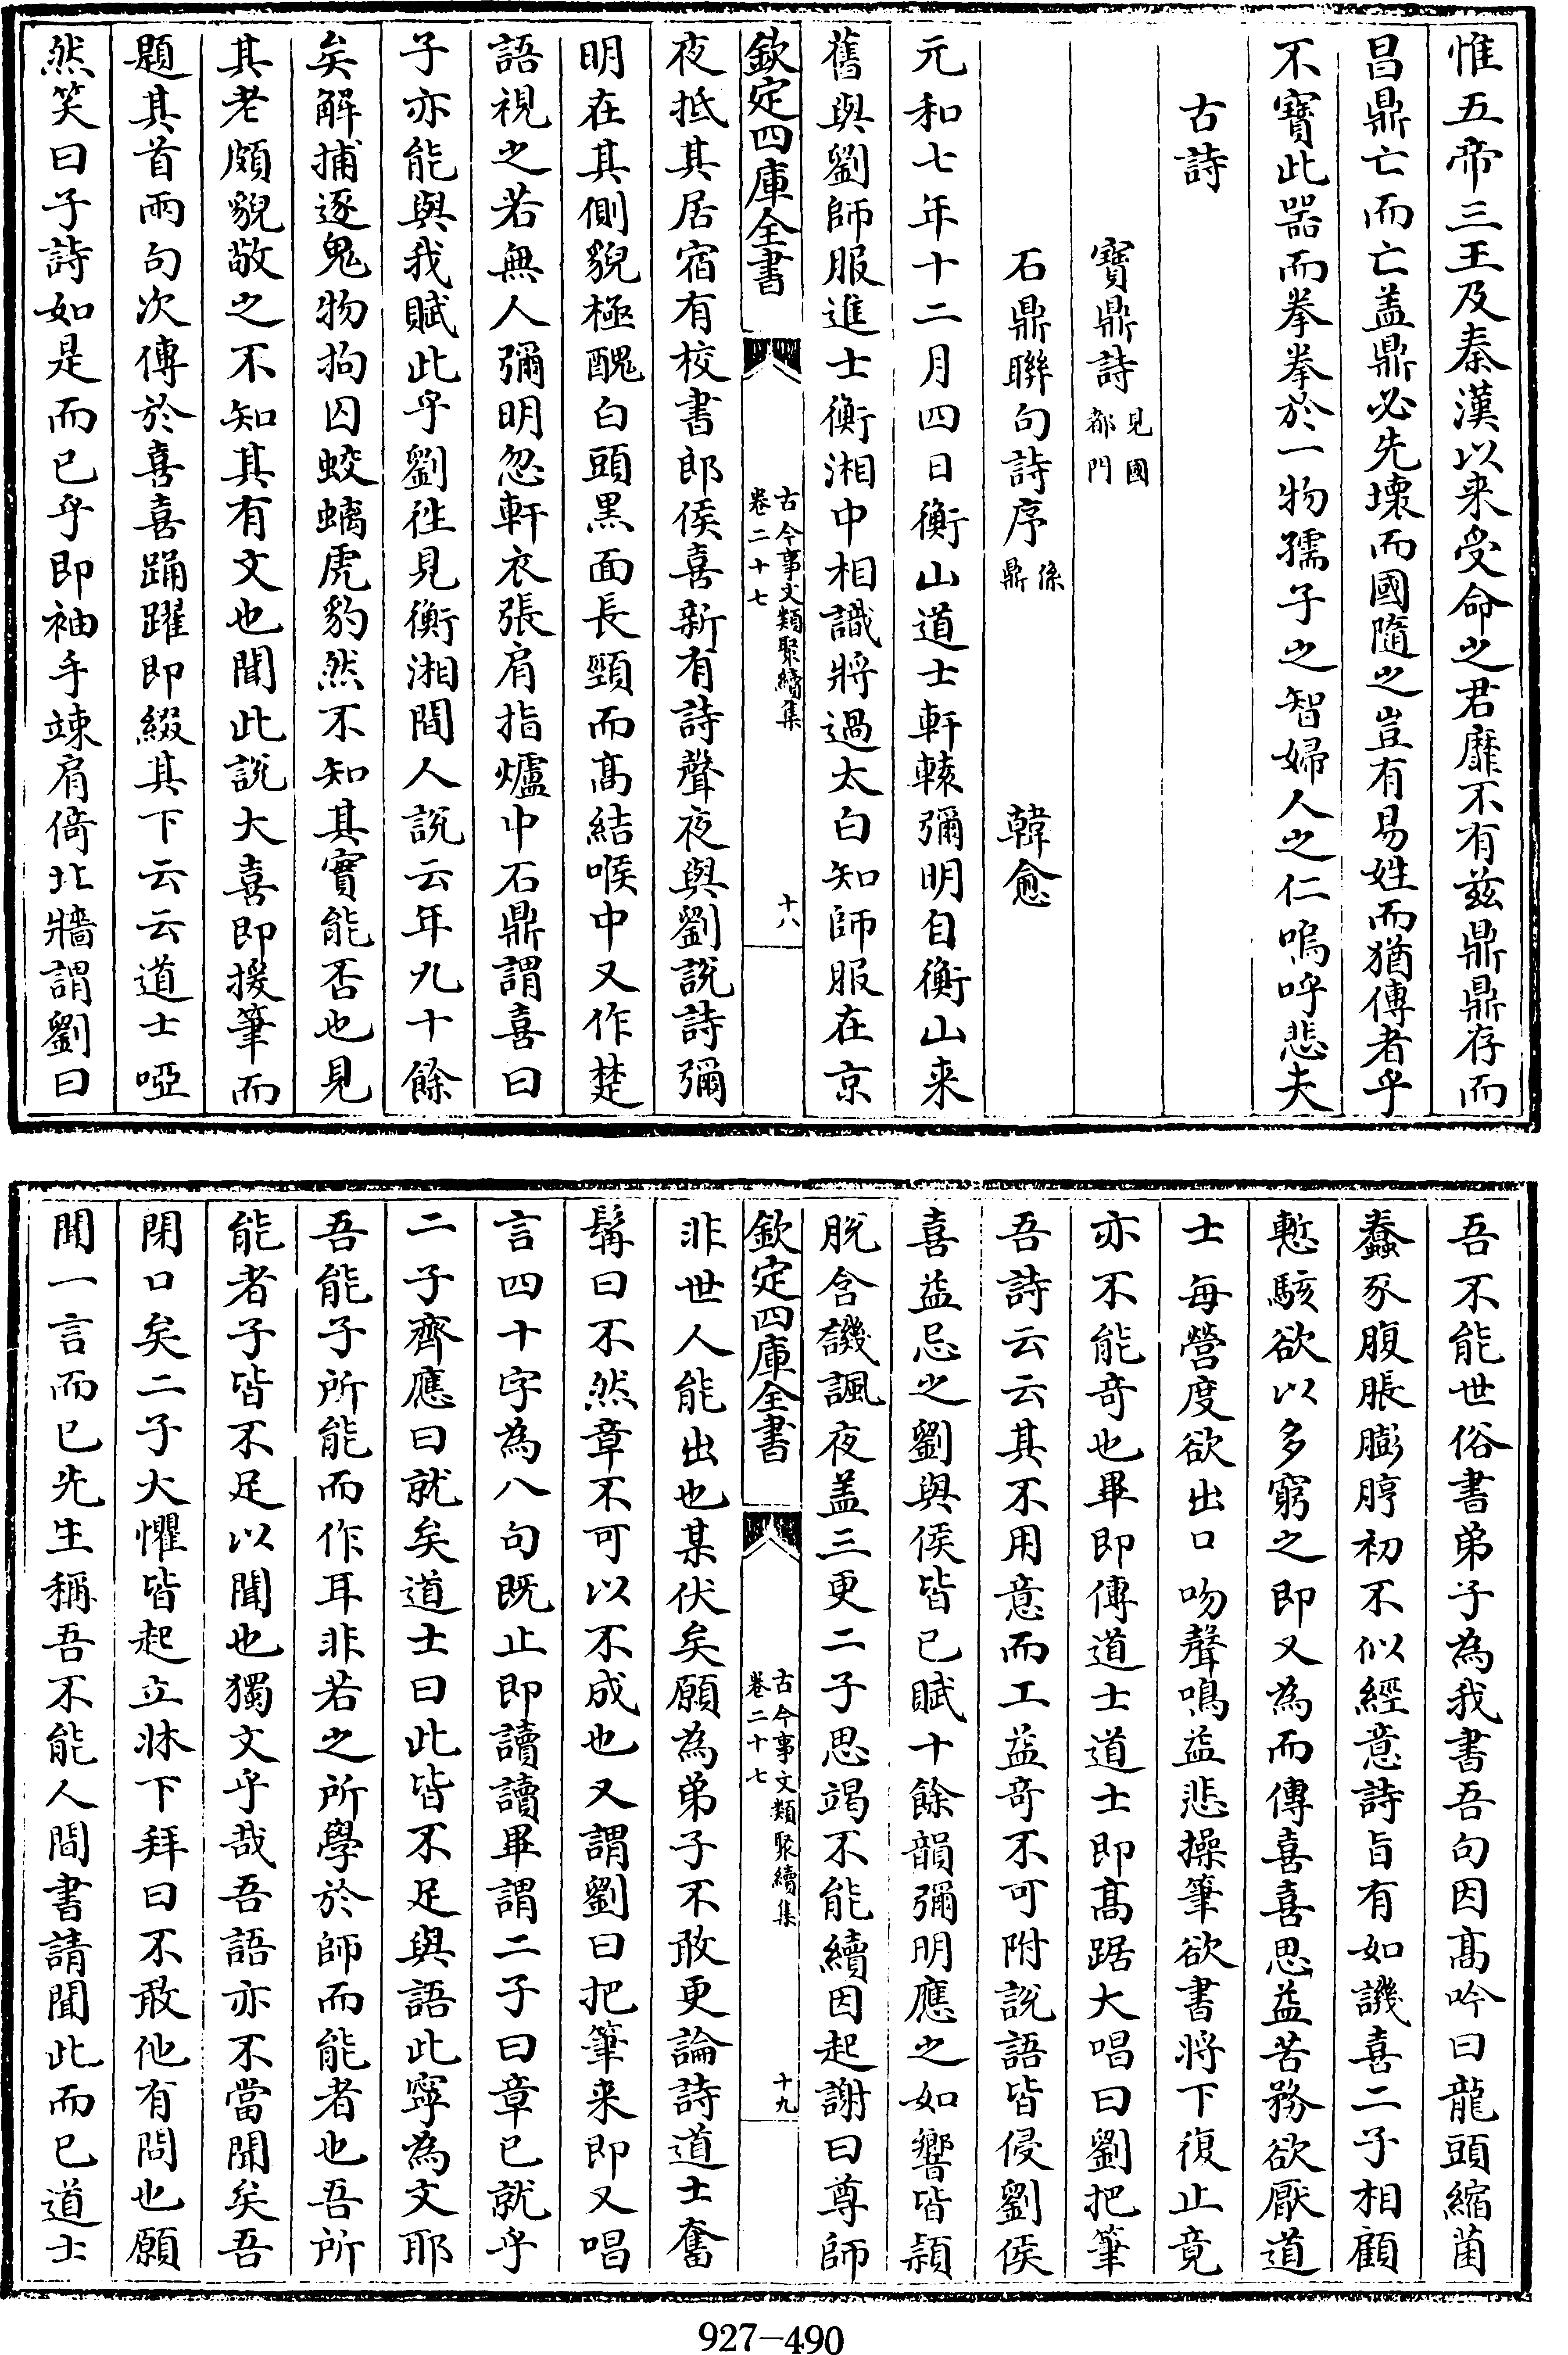 惟五帝三王及秦漢以来受命之君靡不有兹鼎鼎存而
昌鼎亡而亡盖鼎必先壊而國隨之豈有易姓而猶傳者乎
不寳此器而拳拳於一物孺子之智婦人之仁嗚呼悲夫
古詩
寳鼎詩見國都門
石鼎聯句詩序係鼎 韓愈
元和七年十二月四日衡山道士軒轅彌明自衡山来
舊與劉師服進士衡湘中相識將過太白知師服在京
欽定四庫全書 古今事文類聚續集 卷二十七 十八
夜抵其居宿有校書郎侯喜新有詩聲夜與劉說詩彌
明在其側貌極醜白頭黒面長頸而髙結喉中又作楚
語視之若無人彌明忽軒衣張肩指爐中石鼎謂喜曰
子亦能與我賦此乎劉徃見衡湘間人說云年九十餘
矣解捕逐鬼物拘囚蛟螭虎豹然不知其實能否也見
其老頗貌敬之不知其有文也聞此說大喜即援筆而
題其首兩句次傳於喜喜踊躍即綴其下云云道士啞
然笑曰子詩如是而已乎即袖手竦肩倚北牆謂劉曰
吾不能世俗書弟子為我書吾句因髙吟曰龍頭縮菌
蠢豕腹脹膨脝初不似經意詩旨有如譏喜二子相顧
慙駭欲以多窮之即又為而傳喜喜思益苦務欲厭道
士每營度欲出口吻聲鳴益悲操筆欲書将下復止竟
亦不能竒也畢即傳道士道士即髙踞大唱曰劉把筆
吾詩云云其不用意而工益竒不可附說語皆侵劉侯
喜益忌之劉與侯皆已賦十餘韻彌明應之如響皆頴
脱含譏諷夜盖三更二子思竭不能續因起謝曰尊師
欽定四庫全書 古今事文類聚續集 卷二十七 十九
非世人能出也某伏矣願為弟子不敢更論詩道士奮
髯曰不然章不可以不成也又謂劉曰把筆来即又唱
言四十字為八句既止即讀讀畢謂二子曰章已就乎
二子齊應曰就矣道士曰此皆不足與語此寧為文耶
吾能子所能而作耳非若之所學於師而能者也吾所
能者子皆不足以聞也獨文乎哉吾語亦不當聞矣吾
閉口矣二子大懼皆起立牀下拜曰不敢他有問也願
聞一言而已先生稱吾不能人間書請聞此而已道士
927-490